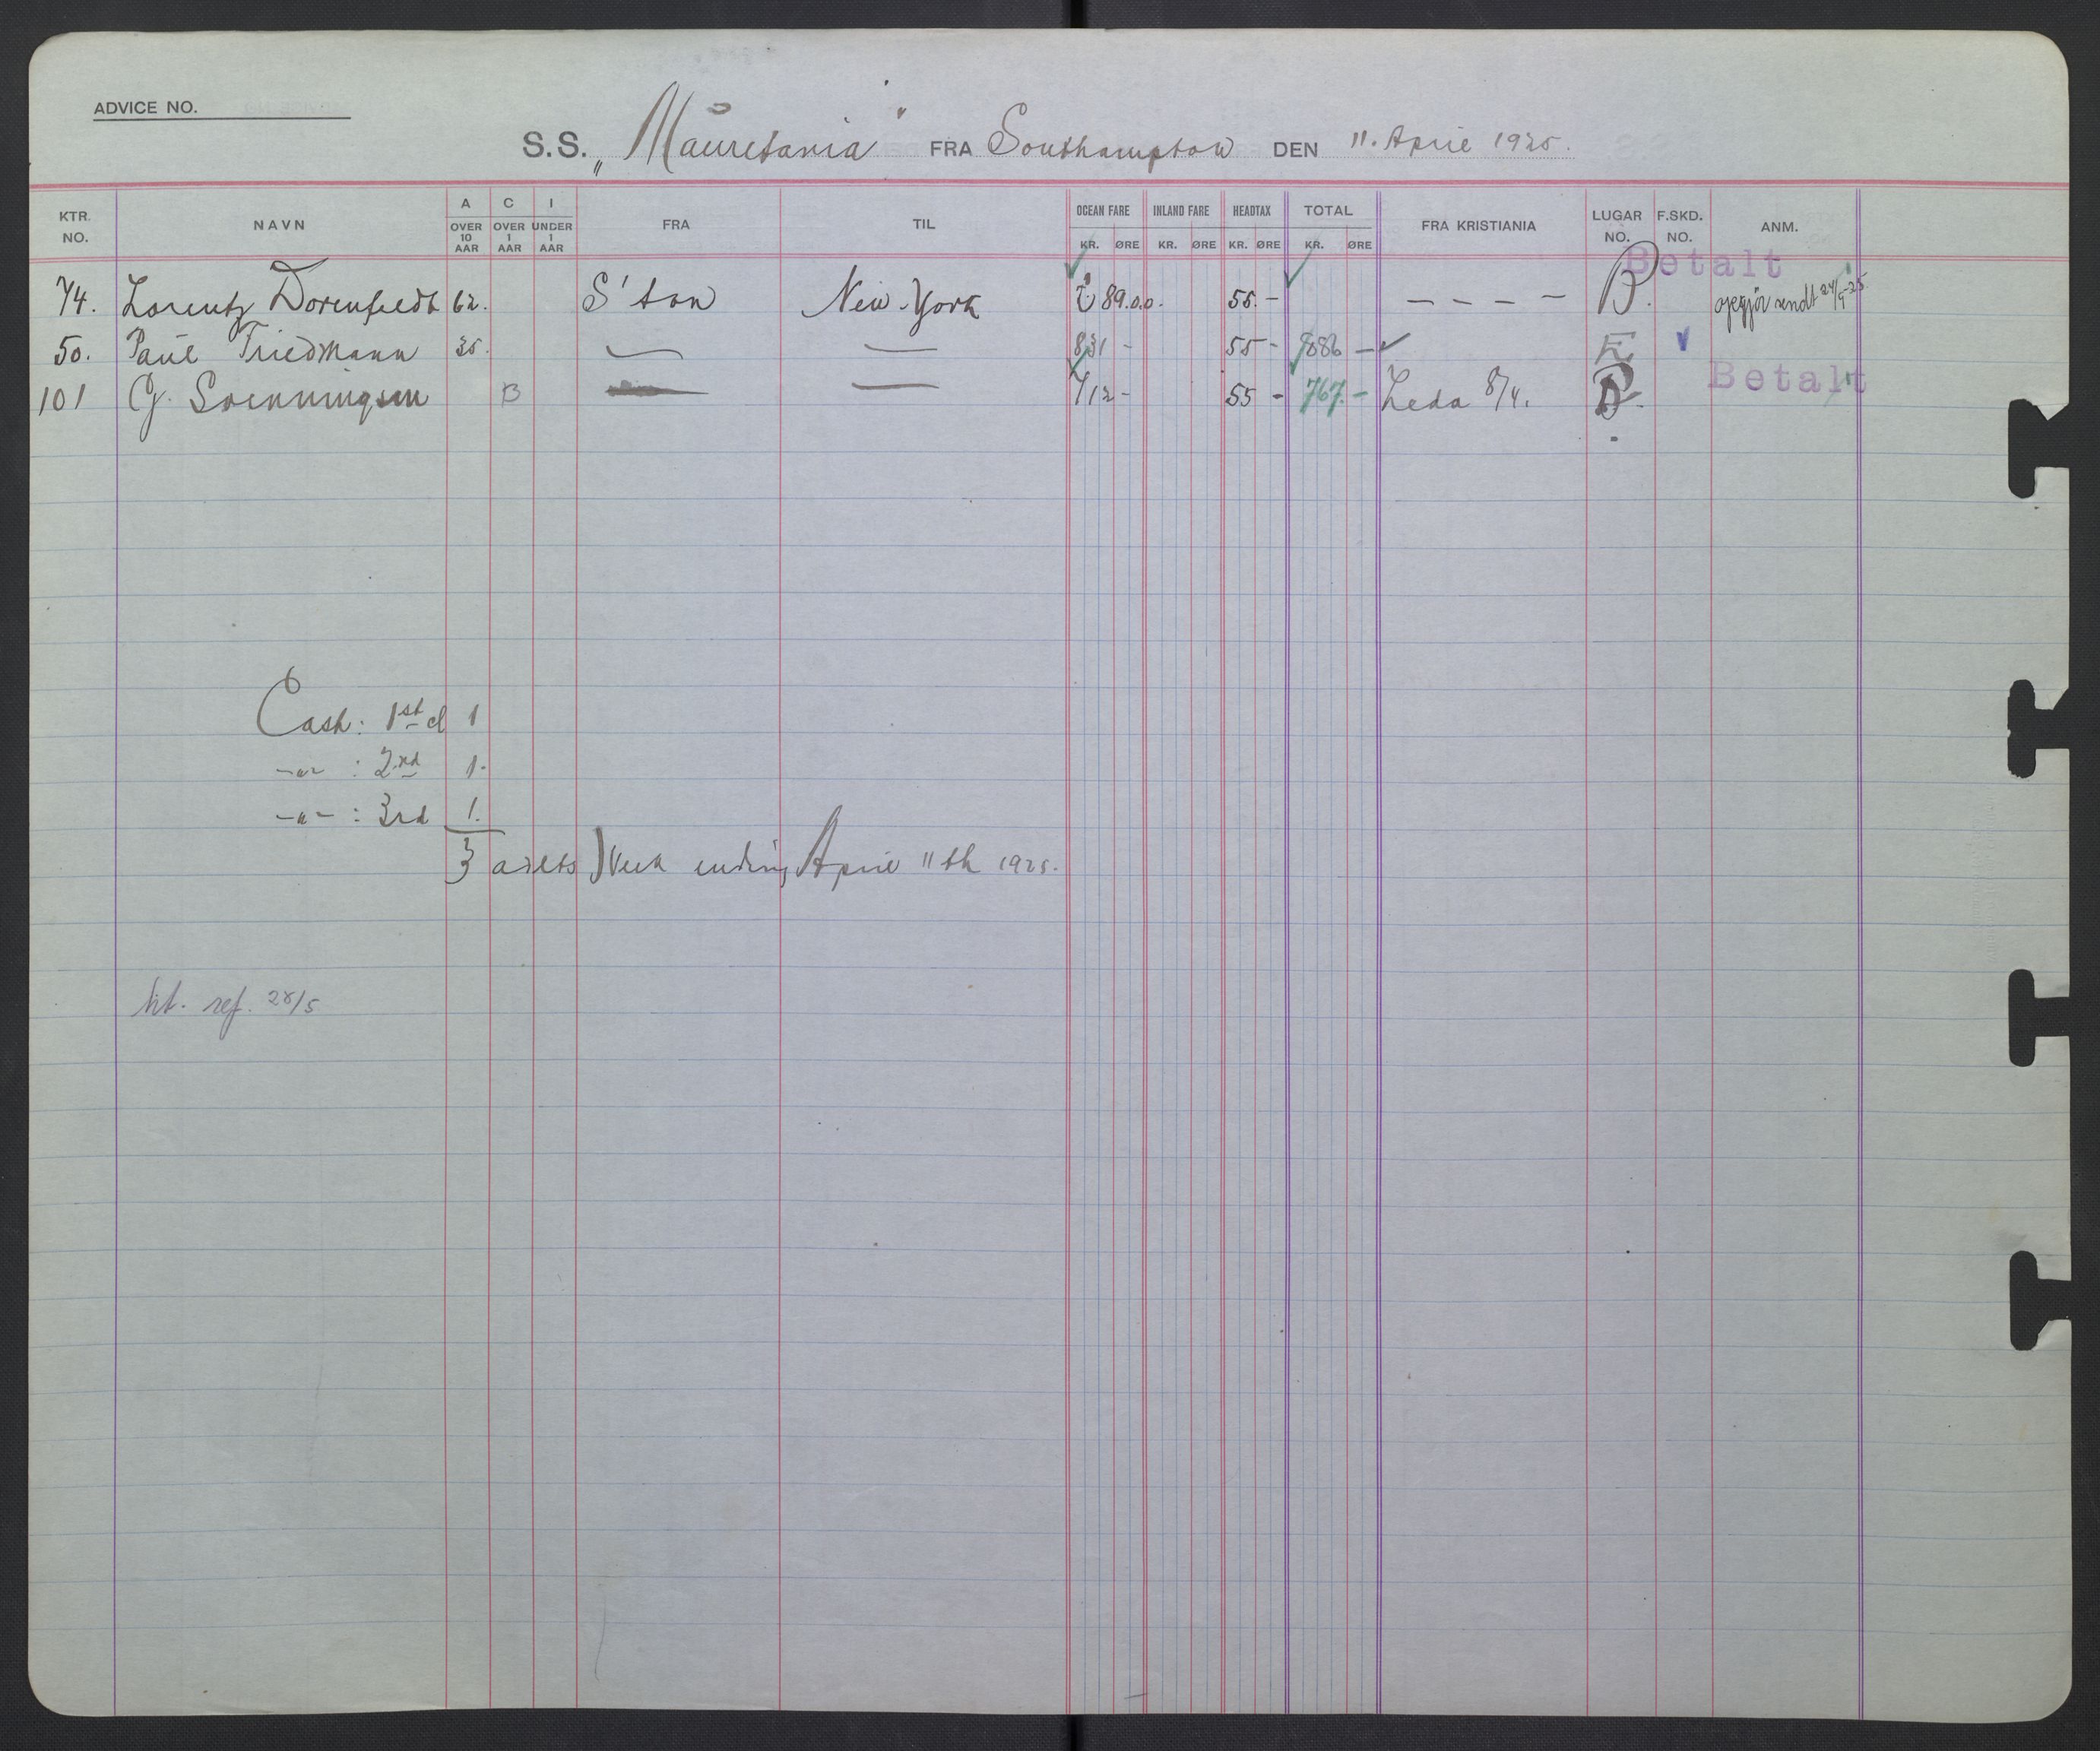 ADVICE NO.
S.S. „Mauretania" FRA Southampton DEN 11. April 1925.
KTR. NO. NAVN A OVER 10 AAR C OVER 1 AAR I UNDER 1 AAR FRA TIL OCEAN FARE KR. ØRE INLAND FARE KR. ØRE HEADTAX KR. ØRE TOTAL KR. ØRE FRA KRISTIANIA LUGAR NO. F.SKD. NO. ANM.
Betalt
74. Lorentz Dorenfeldt 62. S'ton New-York 89.0.0. 55.- - - - - B. opgjör sendt 24/4-25
50. Paul Friedmann 35. — — 831 - 55 - 886 -
Betalt
101 G. Svenningsen — — 712 - 55 - 767.- Leda 8/4.
Cash: 1st cl 1
-"- : 2nd 1.
-"- : 3rd 1.
3 adlts Week ending April 11th 1925.
ref. 28/5